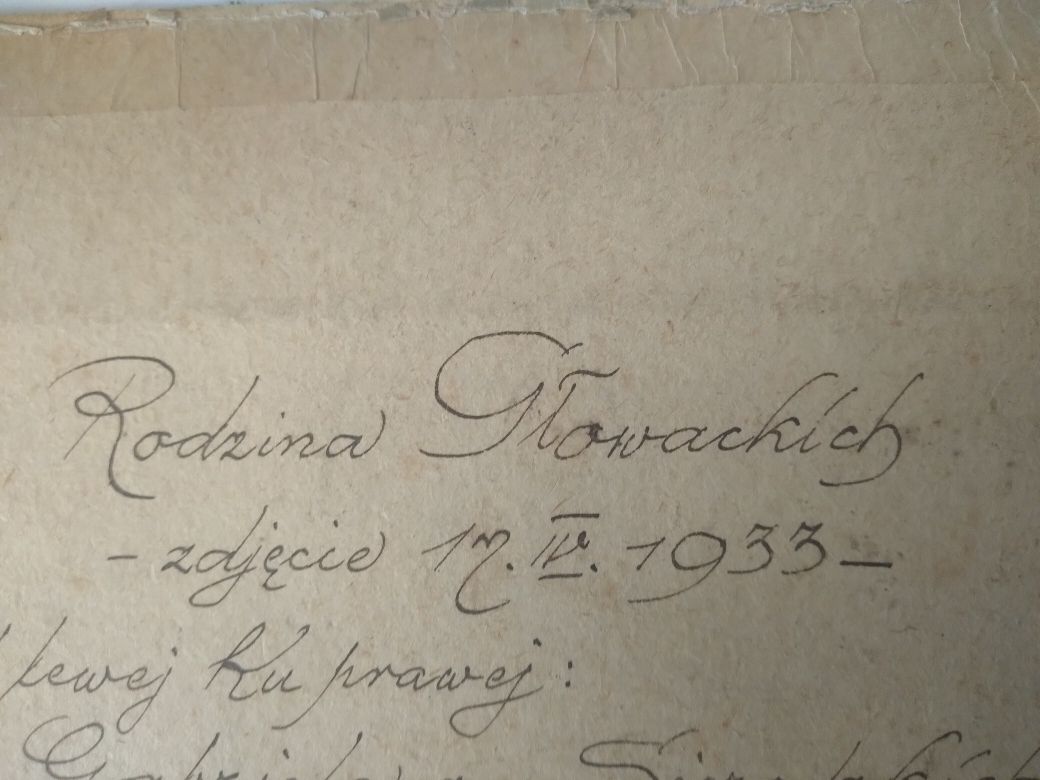 Rodzina Głowackich
- zdjęcie 17. IV. 1933 -
lewej ku prawej: